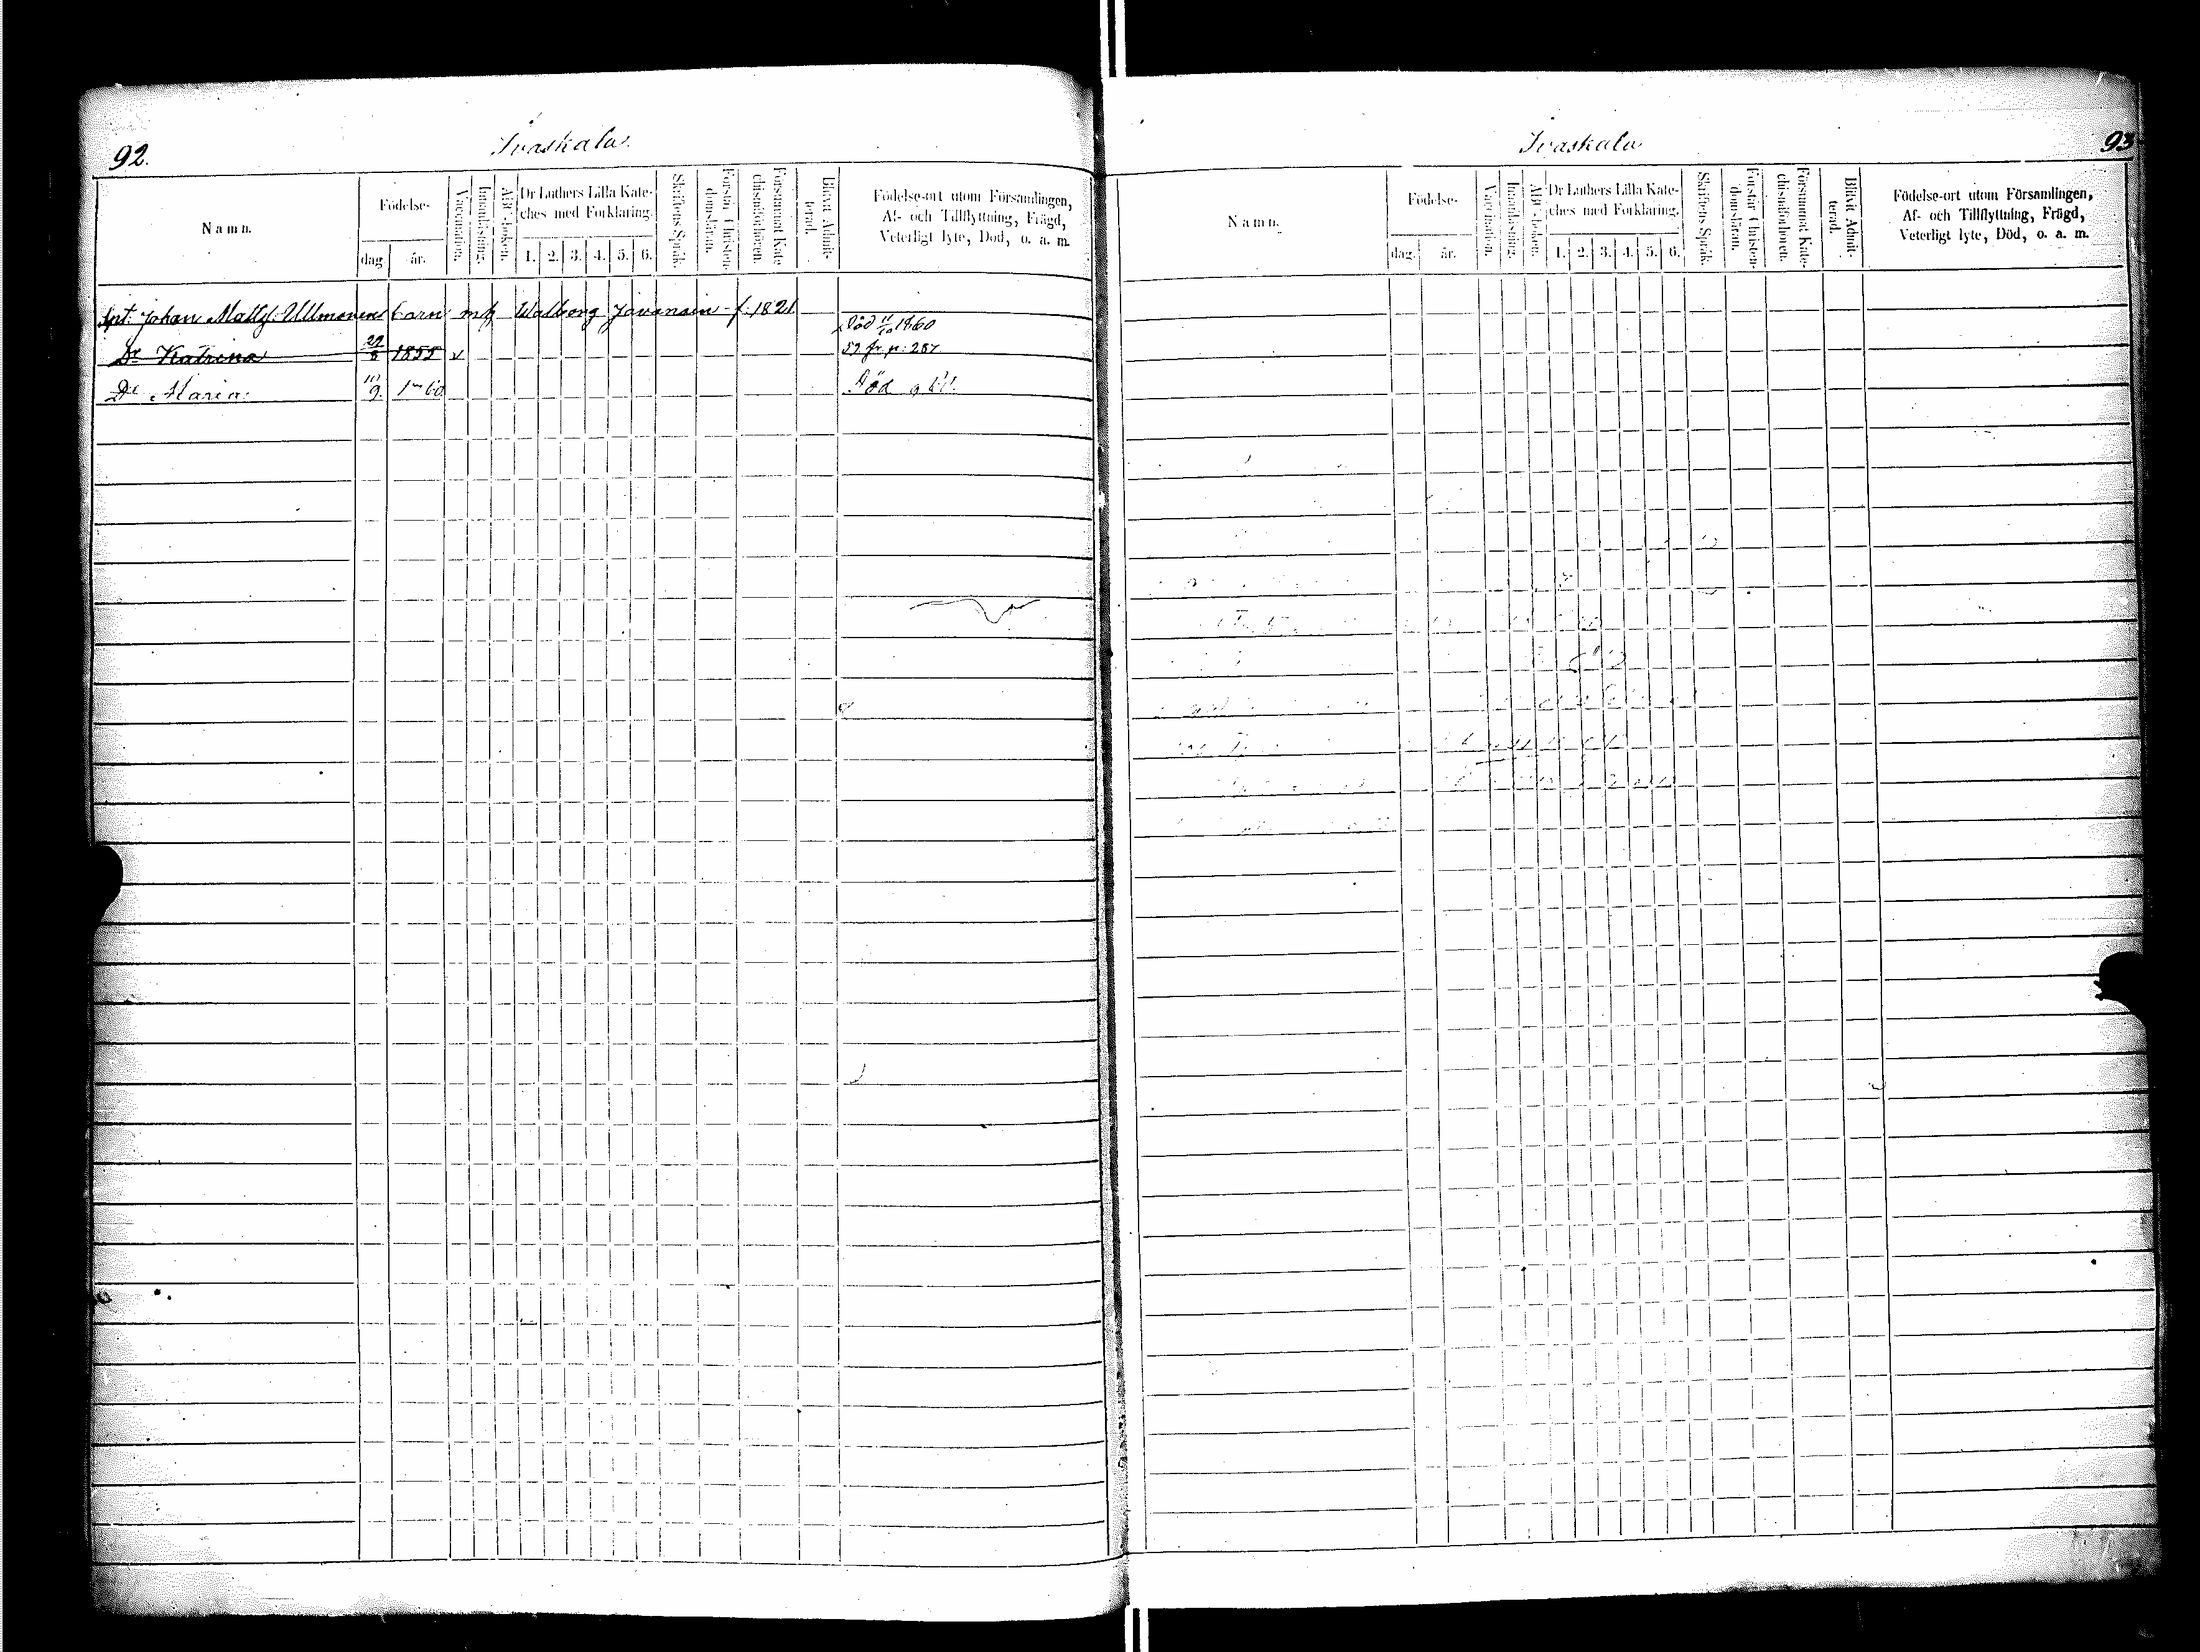 92.
Ivaskala.
Namn.
Födelse-
dag.
år.
Vaccination.
Innanläsning.
Abc-boken.
Dr Luthers Lilla Kate-
ches med Förklaring.
1. 2. 3. 4. 5. 6.
Skriftens Språk.
Förstår Christen-
domsläran.
Försummat Kate-
chismiförhören.
Blifvit Admit-
terad.
Födelse-ort utom Församlingen,
Af- och Tillflyttning, Frägd,
Veterligt lyte, Död, o. a. m.
Spt: Johan Matts: Ullmanens barn m/h Walborg Javanain f: 1821
Död 11/10 1860
Dr Katrina 29/8 1855 v 59 fr. p: 287
Dr Maria 10/9 1860 Död
Ivaskala
93
Namn.
Födelse-
dag.
år.
Vaccination.
Innanläsning.
Abc-boken.
Dr Luthers Lilla Kate-
ches med Förklaring.
1. 2. 3. 4. 5. 6.
Skriftens Språk.
Förstår Christen-
domsläran.
Försummat Kate-
chismiförhören.
Blifvit Admit-
terad.
Födelse-ort utom Församlingen,
Af- och Tillflyttning, Frägd,
Veterligt lyte, Död, o. a. m.